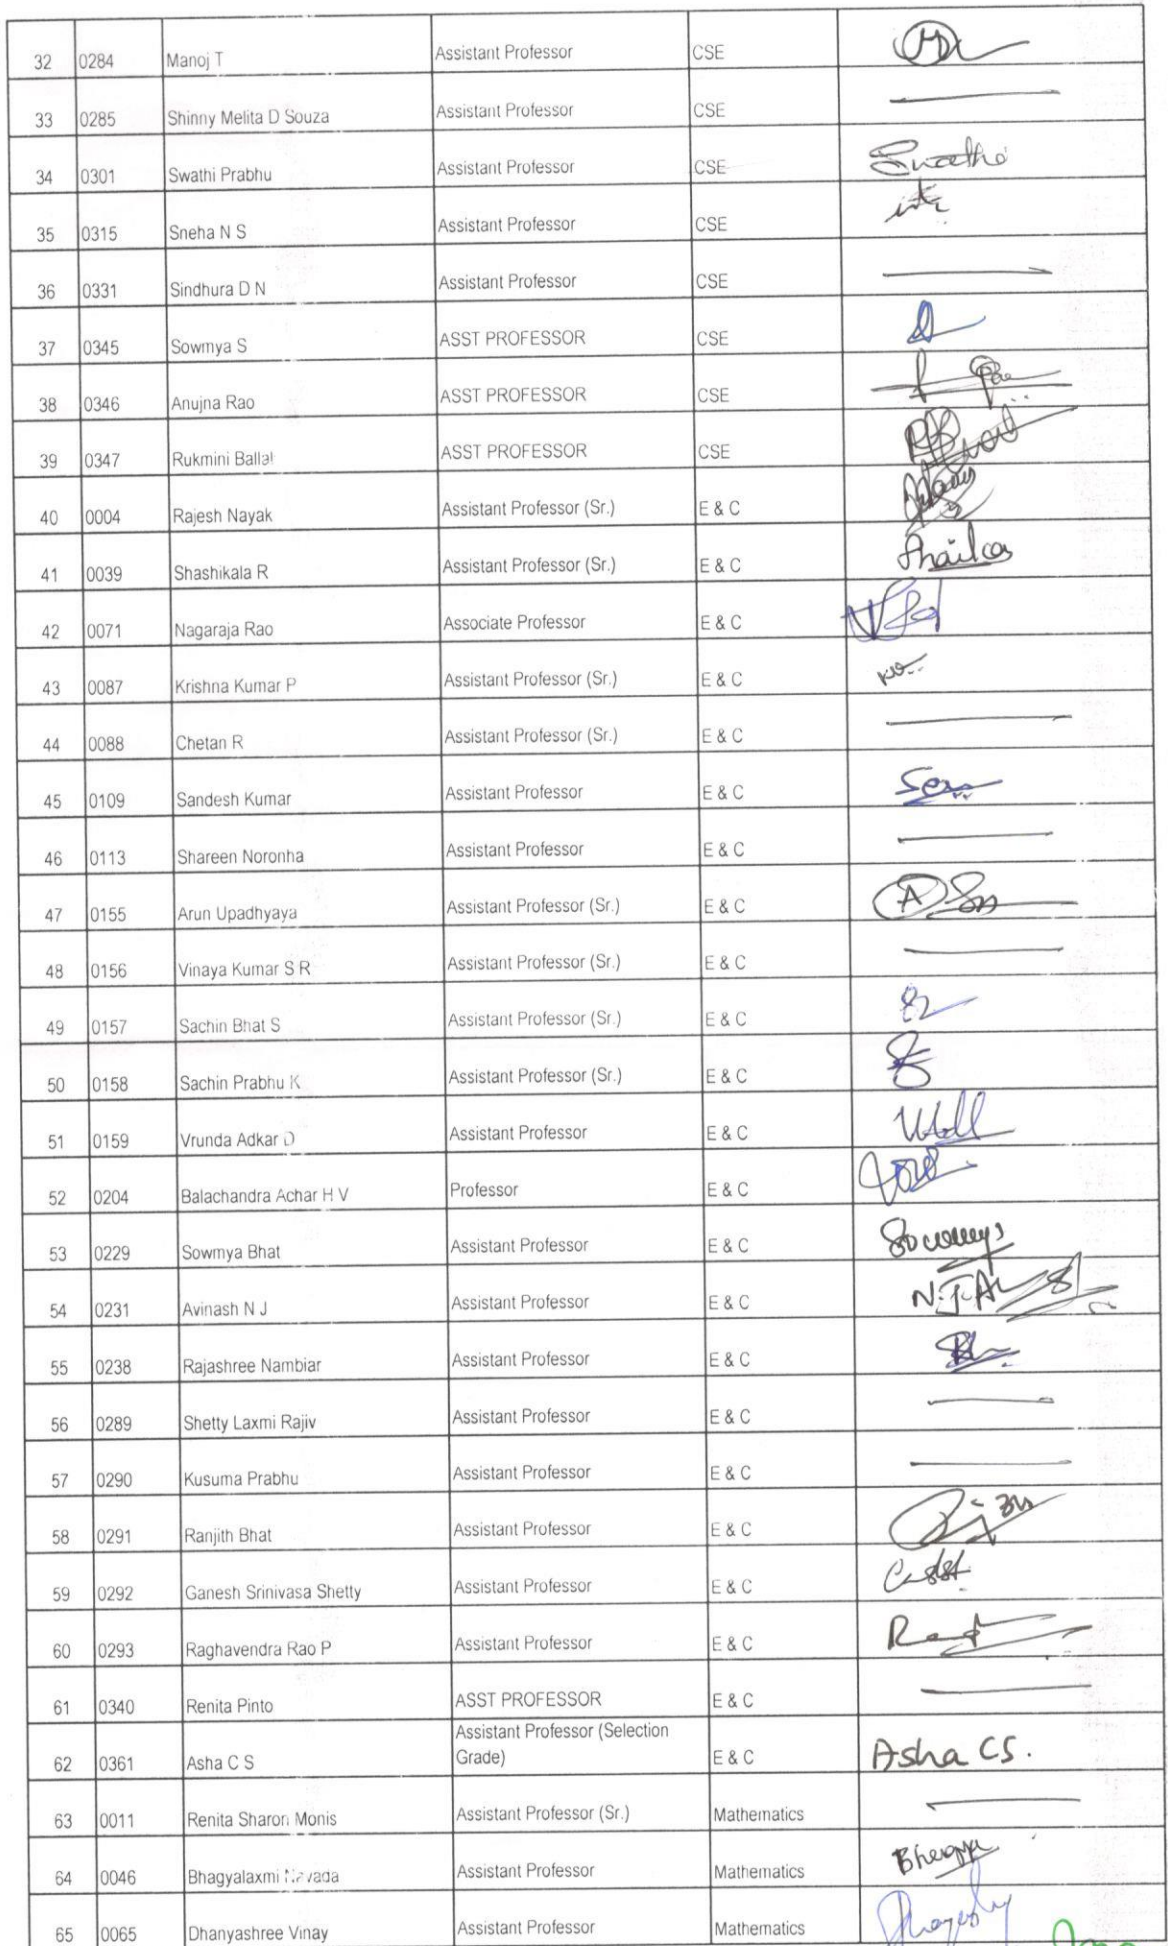 32 0284 Manoj T Assistant Professor CSE
33 0285 Shinny Melita D Souza Assistant Professor CSE
34 0301 Swathi Prabhu Assistant Professor CSE Swathi
35 0315 Sneha N S Assistant Professor CSE
36 0331 Sindhura D N Assistant Professor CSE
37 0345 Sowmya S ASST PROFESSOR CSE
38 0346 Anujna Rao ASST PROFESSOR CSE
39 0347 Rukmini Ballal ASST PROFESSOR CSE
40 0004 Rajesh Nayak Assistant Professor (Sr.) E & C
41 0039 Shashikala R Assistant Professor (Sr.) E & C
42 0071 Nagaraja Rao Associate Professor E & C
43 0087 Krishna Kumar P Assistant Professor (Sr.) E & C
44 0088 Chetan R Assistant Professor (Sr.) E & C
45 0109 Sandesh Kumar Assistant Professor E & C
46 0113 Shareen Noronha Assistant Professor E & C
47 0155 Arun Upadhyaya Assistant Professor (Sr.) E & C
48 0156 Vinaya Kumar S R Assistant Professor (Sr.) E & C
49 0157 Sachin Bhat S Assistant Professor (Sr.) E & C
50 0158 Sachin Prabhu K Assistant Professor (Sr.) E & C
51 0159 Vrunda Adkar D Assistant Professor E & C
52 0204 Balachandra Achar H V Professor E & C
53 0229 Sowmya Bhat Assistant Professor E & C
54 0231 Avinash N J Assistant Professor E & C
55 0238 Rajashree Nambiar Assistant Professor E & C
56 0289 Shetty Laxmi Rajiv Assistant Professor E & C
57 0290 Kusuma Prabhu Assistant Professor E & C
58 0291 Ranjith Bhat Assistant Professor E & C
59 0292 Ganesh Srinivasa Shetty Assistant Professor E & C
60 0293 Raghavendra Rao P Assistant Professor E & C
61 0340 Renita Pinto ASST PROFESSOR E & C
Assistant Professor (Selection
62 0361 Asha C S Grade) E & C Asha CS.
63 0011 Renita Sharon Monis Assistant Professor (Sr.) Mathematics
64 0046 Bhagyalaxmi Navada Assistant Professor Mathematics
65 0065 Dhanyashree Vinay Assistant Professor Mathematics